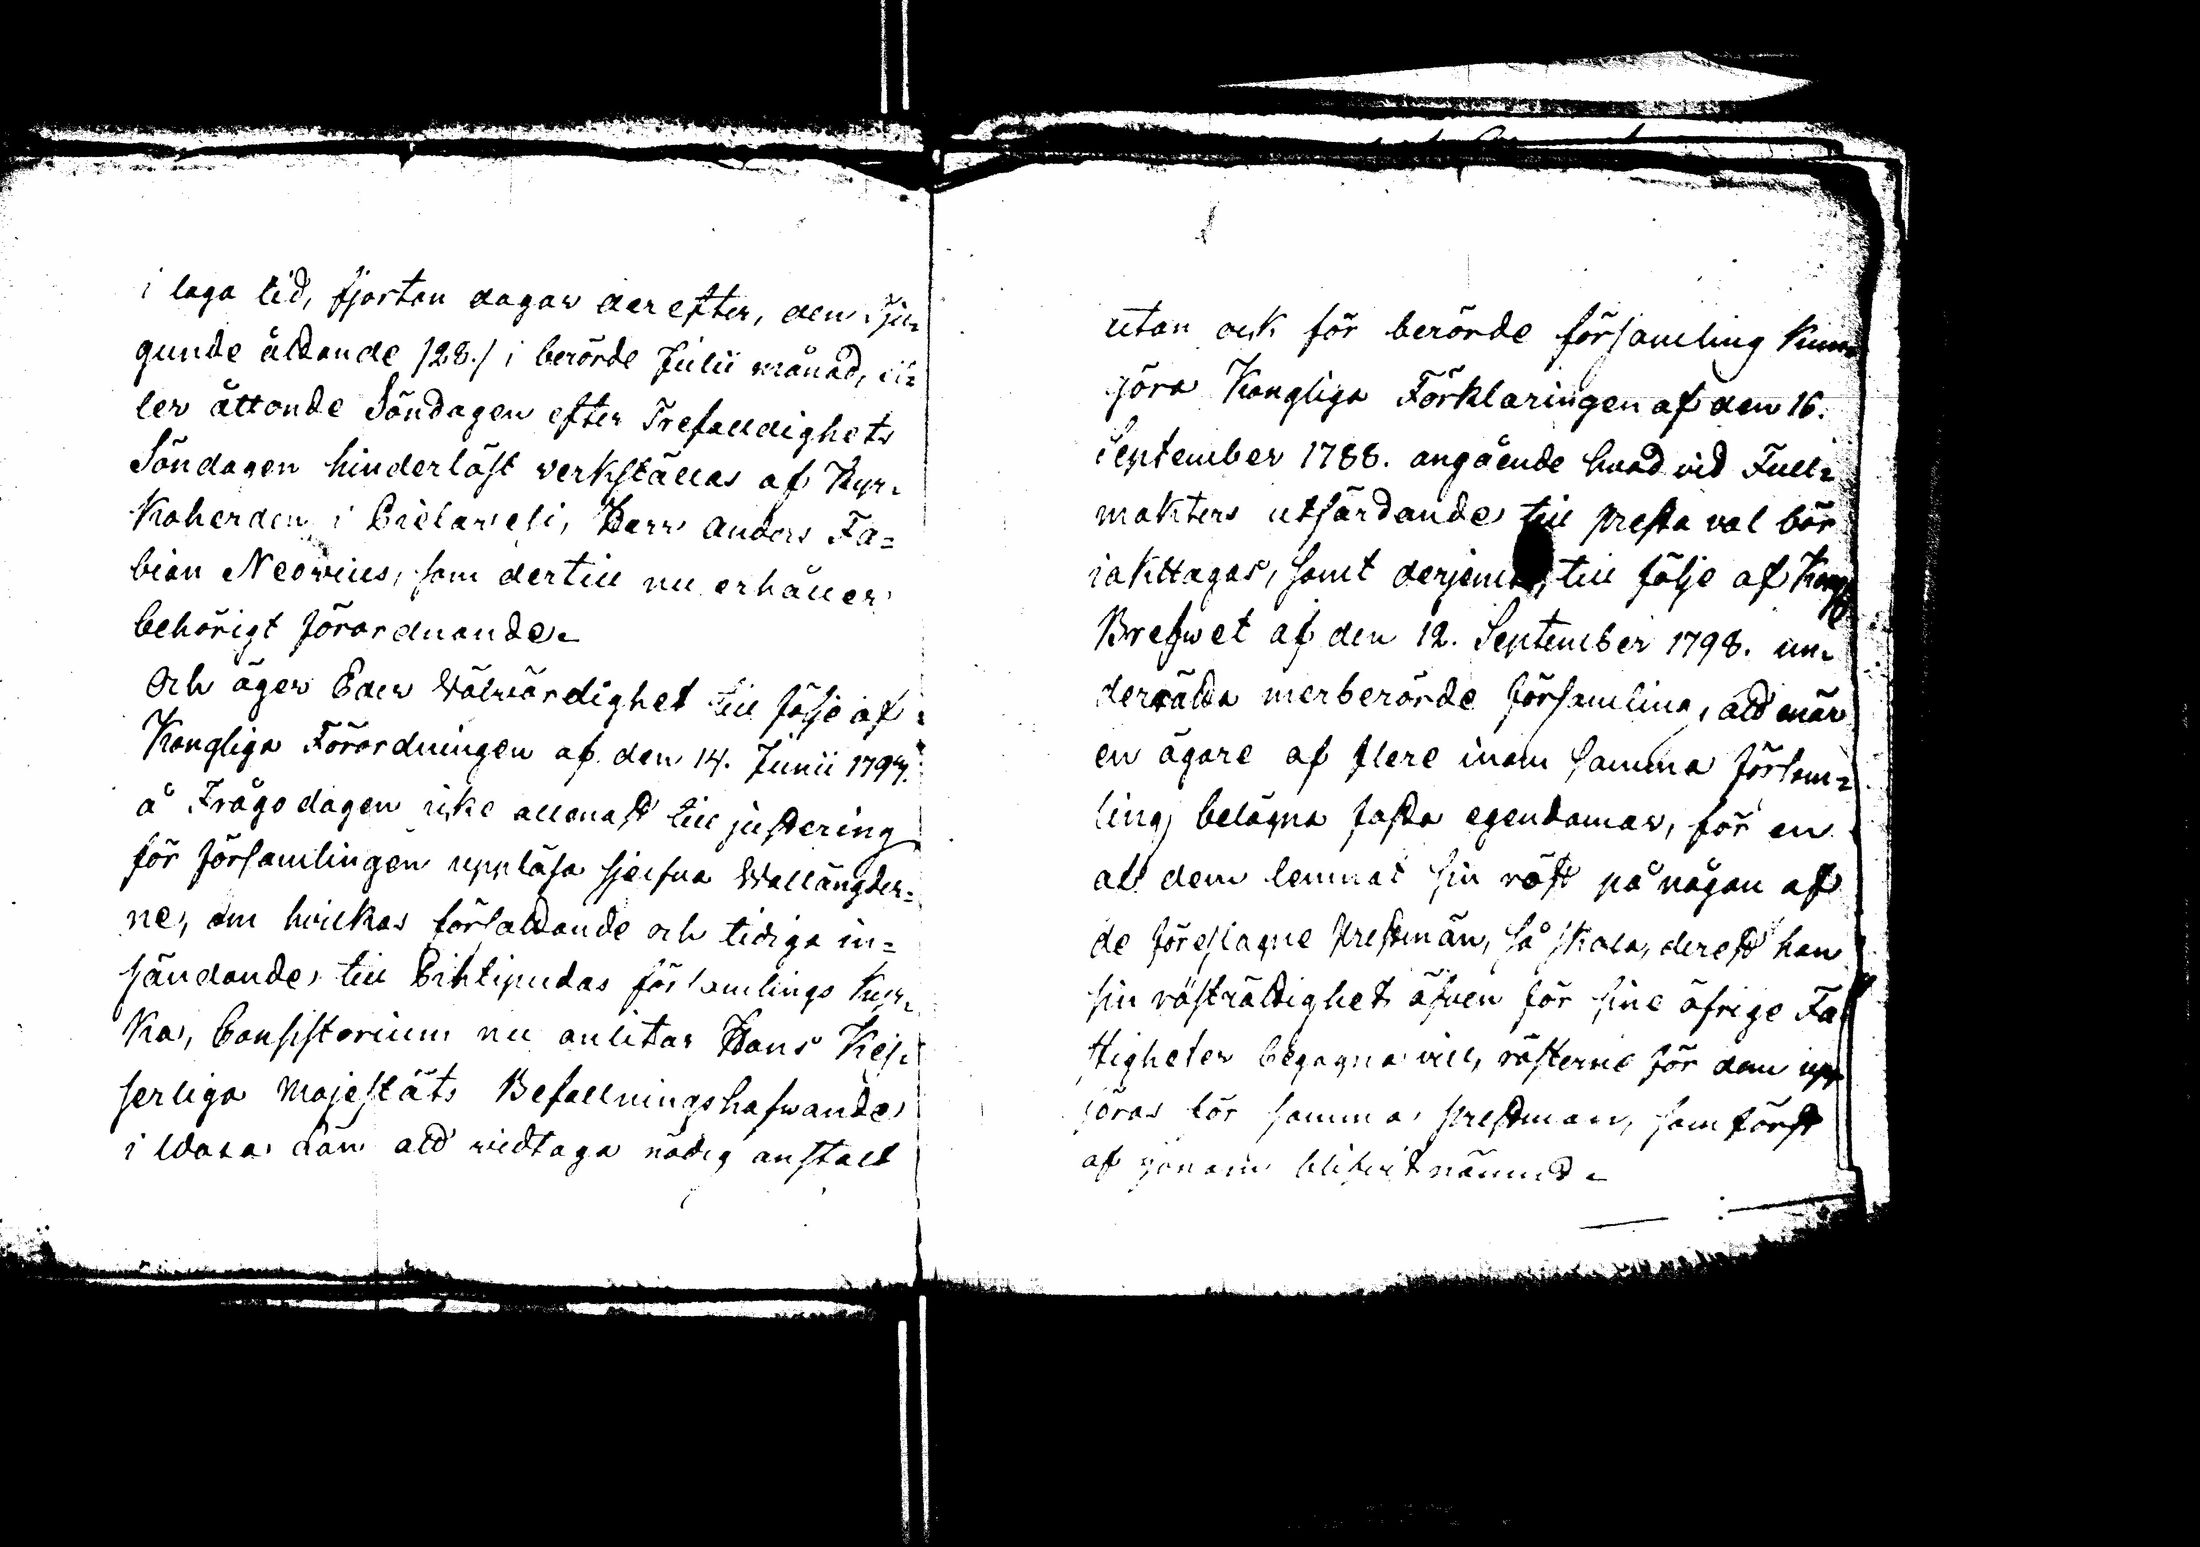 i laga tid, fjorton dagar derefter, den tju-
gunde åttonde /28./ i berörde Julii månad, el-
ler åttonde Söndagen efter Trefalldighets
Söndagen hinderlöst verkställas af Kyr-
koherden i Pielavesi, Herr Anders Fa-
bian Neovius, som dertill nu erhåller
behörigt förordnande.
Och äger Eder Wälwärdighet till följe af
Kongliga Förordningen af den 14. Junii 1794.
å Frågodagen icke allenast till justering
för församlingen uppläsa sjelfva Wallängder-
ne, om hvilkas författande och tidiga in-
sändande till Pihtipudas församlings Kyr-
ka, Consistorium nu anlitar Hans Kej-
serliga Majestäts Befallningshafwande
i Wasa Län att widtaga nödig anstalt
utan ock för berörde församling kun-
göra Kongliga Förklaringen af den 16.
September 1788. angående hvad vid Full-
makters utfärdande till presta val bör
iakttagas, samt derjemte, till följe af Kongl.
Brefwet af den 12. September 1798. un-
derrätta merberörde församling, att när
en ägare af flere inom samma försam-
ling belägna fasta egendomar, för en
af dem lemnat sin röst på någon af
de föreslagne prestmän, så skola, derest han
sin rösträttighet äfven för sine öfrige Fa-
stigheter begagna vill, rösterne för dem upp-
föras för samma prestman, som först
af honom blifvit nämnd.